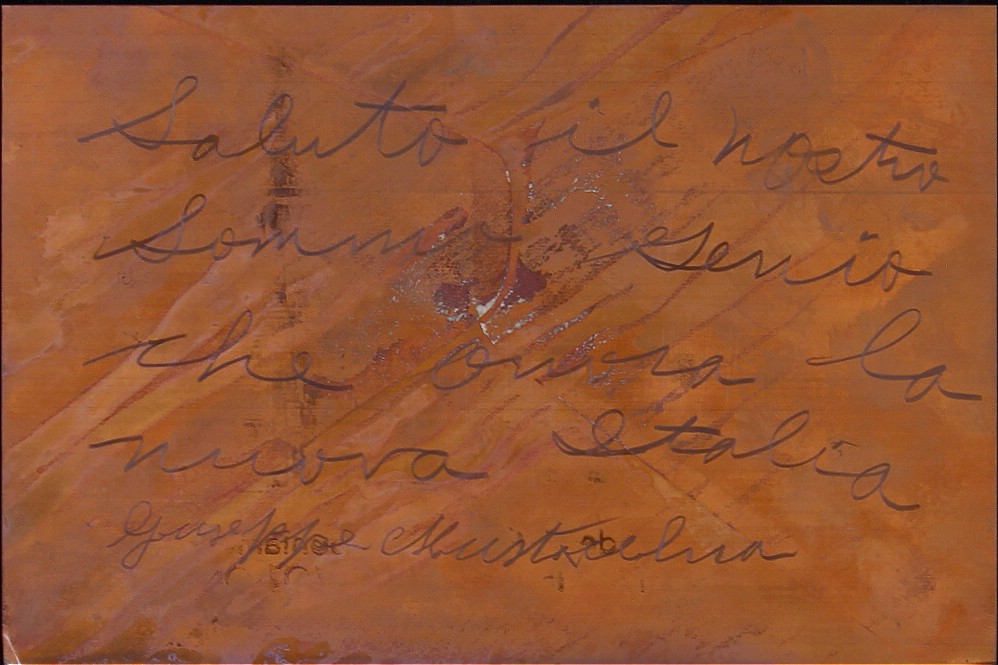 Saluto il nostro
Sommo Genio
che onora la
nuova Italia
Giuseppe